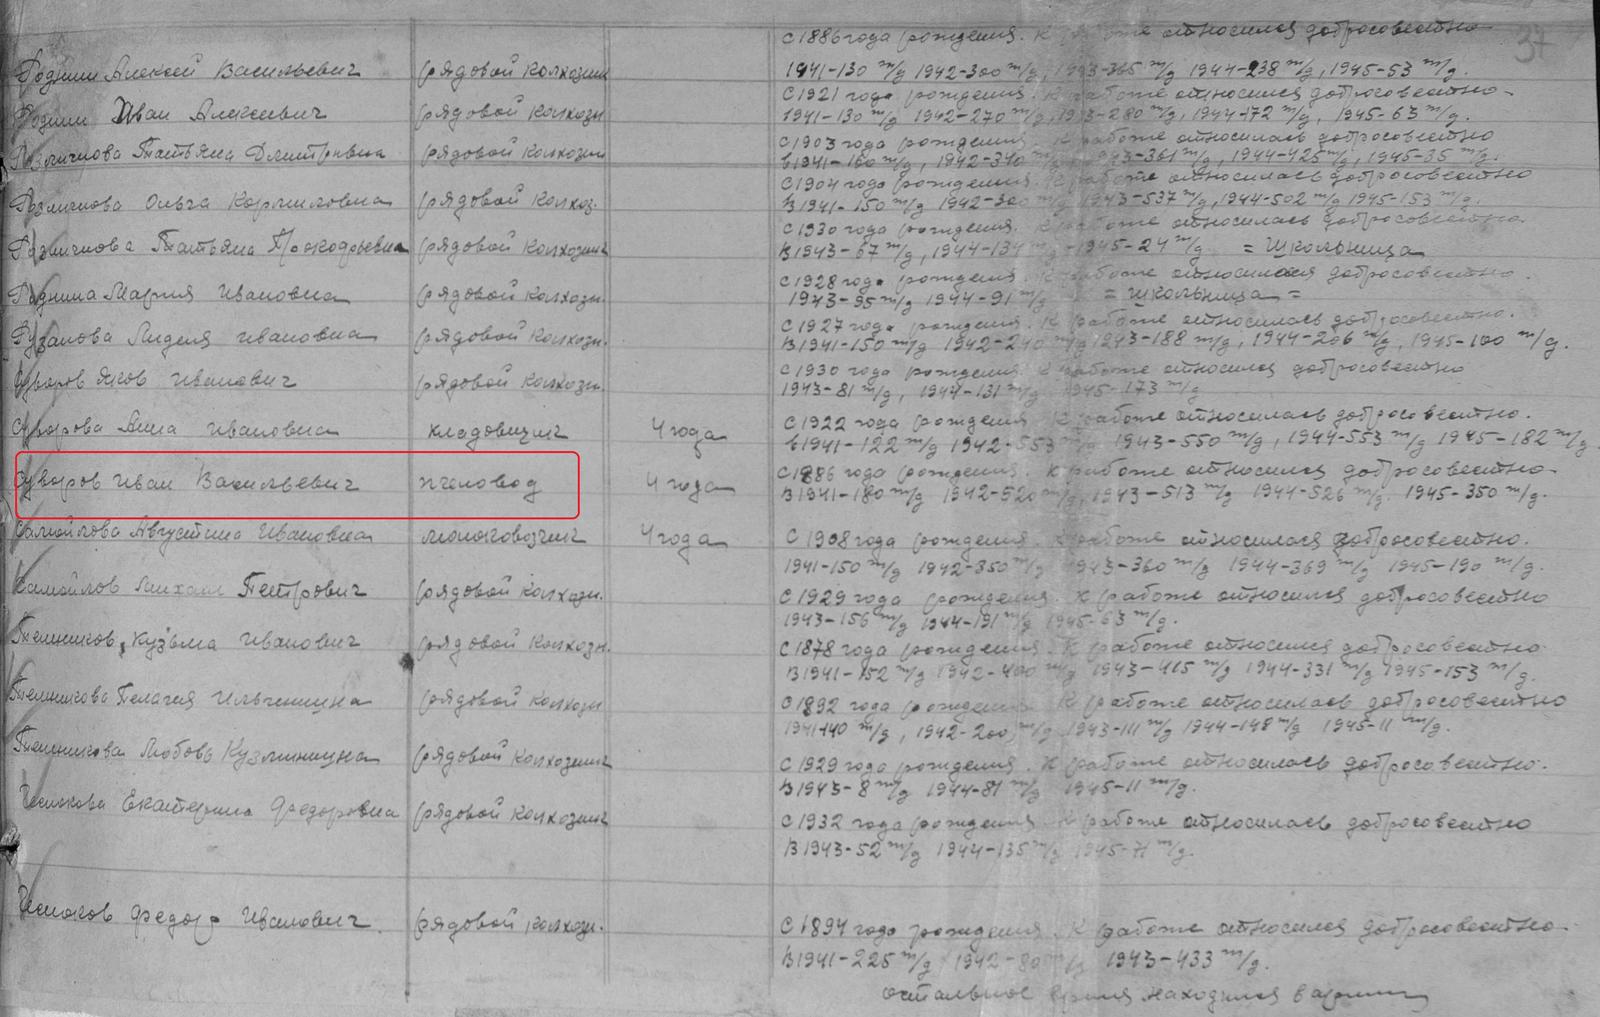 37
с 1886 года рождения. К работе относился добросовестно
Родник Алексей Васильевич рядовой колхозник 1941-130 т/д 1942-300 т/д, 1943-365 т/д 1944-238 т/д, 1945-53 т/д.
с 1921 года рождения. К работе относился добросовестно-
Родник Иван Алексеевич рядовой колхозн 1941-130 т/д 1942-270 т/д, 1943-280 т/д, 1944-172 т/д, 1945-63 т/д.
с 1903 года рождения. К работе относилась добросовестно
Татьяна Дмитривна рядовой колхозник в 1941-160 т/д, 1942-340 т/д 1943-361 т/д, 1944-425 т/д, 1945-35 т/д.
с 1904 года рождения. К работе относилась добросовестно
Ольга Корниловна рядовой колхоз. В 1941-150 т/д 1942-300 т/д 1943-537 т/д, 1944-502 т/д 1945-153 т/д.
с 1930 года рождения. К работе относилась добросовестно.
Татьяна Прокофьевна рядовой колхозник В 1943-67 т/д, 1944-134 т/д 1945-24 т/д = Школьница
с 1928 года рождения. К работе относилася добросовестно.
Роднина Мария Ивановна рядовой колхозн. 1943-95 т/д 1944-91 т/д = школьница =
с 1927 года рождения. К работе относилась добросовестно.
Рузанова Лидея Ивановна рядовой колхозн. В 1941-150 т/д 1942-240 т/д 1943-188 т/д, 1944-206 т/д, 1945-100 т/д.
с 1930 года рождения. К работе относился добросовестно
Суворов Яков Иванович рядовой колхозн. 1943-81 т/д, 1944-131 т/д 1945-173 т/д
с 1922 года рождения. К работе относилась добросовестно.
Суворова Анна Ивановна кладовщик 4 года в 1941-122 т/д 1942-553 т/д 1943-550 т/д, 1944-553 т/д 1945-182 т/д.
с 1886 года рождения. К работе относился добросовестно-
Суворов Иван Васильевич пчеловод 4 года В 1941-180 т/д 1942-520 т/д, 1943-513 т/д 1944-526 т/д. 1945-350 т/д.
Самойлова Августина Ивановна молоковозчик 4 года с 1908 года рождения. К работе относилася добросовестно.
1941-150 т/д 1942-350 т/д 1943-360 т/д 1944-369 т/д 1945-190 т/д.
Самойлов Михаил Петрович рядовой колхозн. с 1929 года рождения. К работе относился добросовестно
1943-156 т/д 1944-191 т/д 1945-63 т/д.
Телешников Кузьма Иванович рядовой колхозн. с 1878 года рождения. К работе относился добросовестно.
В 1941-152 т/д 1942-400 т/д 1943-415 т/д 1944-331 т/д 1945-153 т/д.
Пелагия Ильинишна рядовой колхозн с 1892 года рождения. К работе относилась добросовестно
1941-140 т/д, 1942-200 т/д 1943-111 т/д 1944-148 т/д 1945-11 т/д.
Любовь Кузминишна рядовой колхозник с 1929 года рождения. К работе относилась добросовестно.
В 1943-8 т/д 1944-81 т/д 1945-11 т/д.
Чеснокова Екатерина Федоровна рядовой колхозник с 1932 года рождения. К работе относилась добросовестно
В 1943-52 т/д 1944-135 т/д 1945-71 т/д.
Чесноков Федор Иванович. рядовой колхозн. с 1894 года рождения. К работе относился добросовестно-
В 1941-225 т/д 1942-80 т/д 1943-433 т/д.
остальное время находился в армии